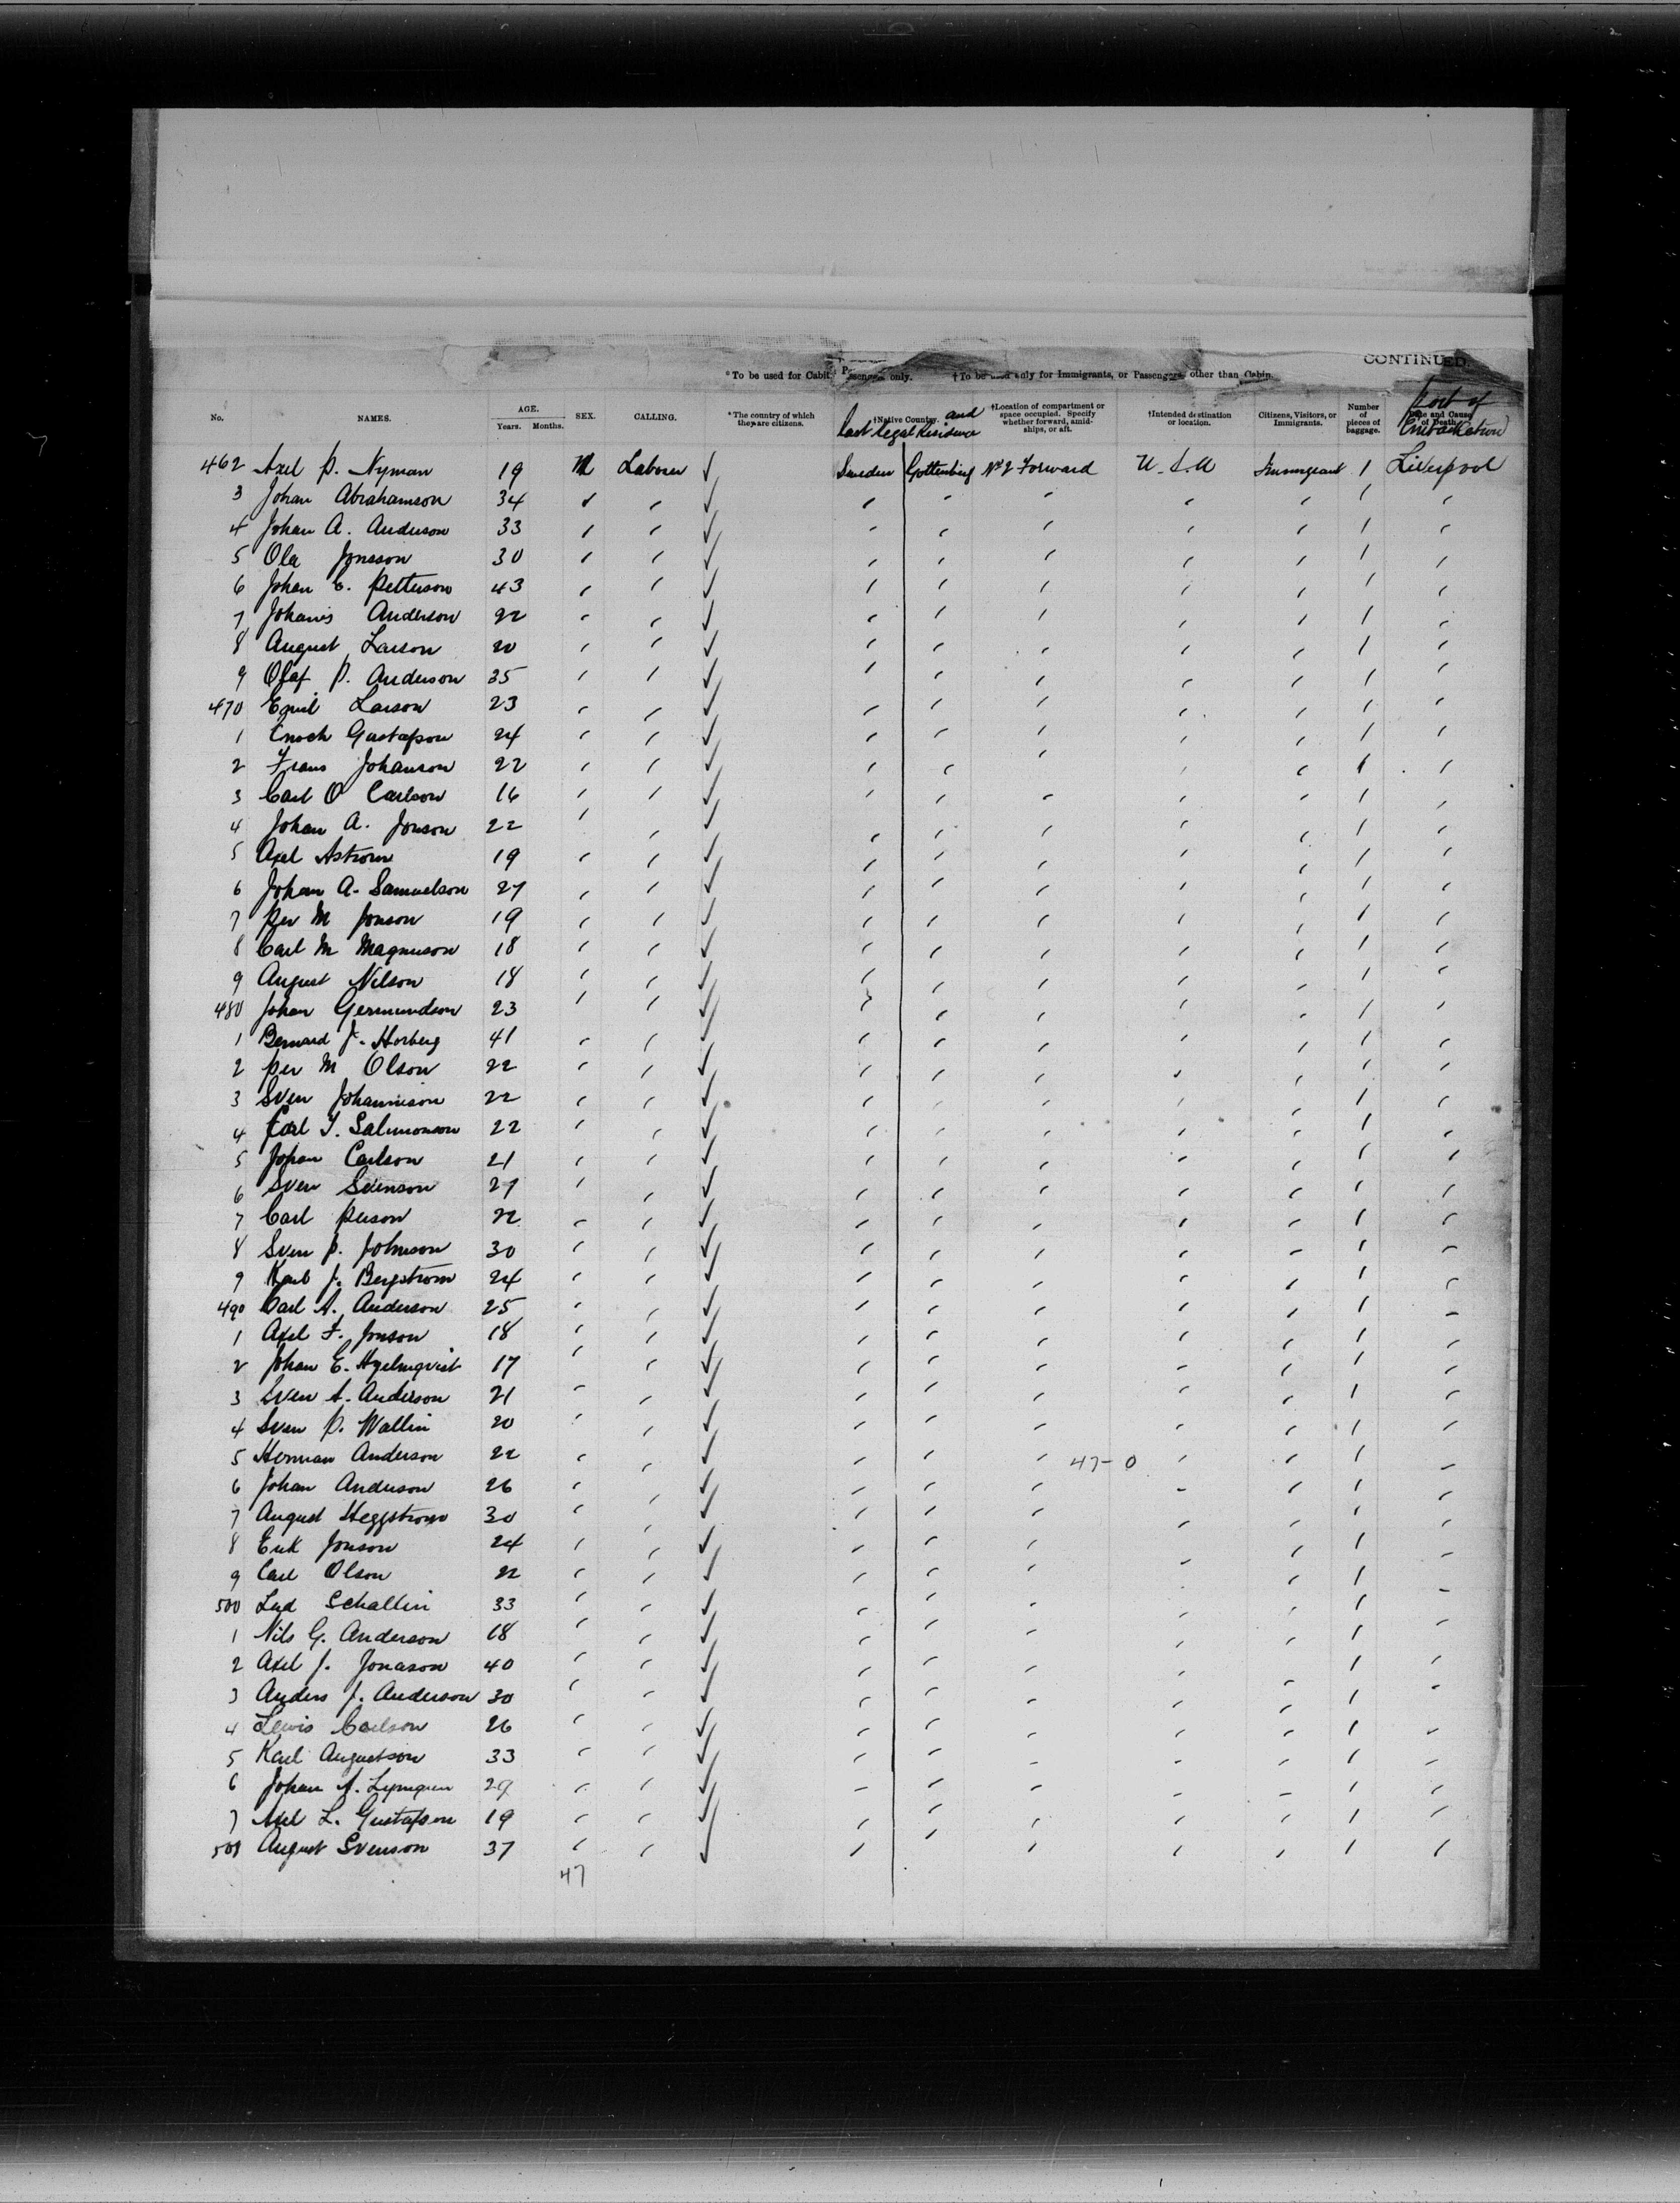 CONTINUED.
*To be used for Cabin Passengers only. †To be used only for Immigrants, or Passengers other than Cabin.
No. NAMES. AGE. Years. Months. SEX. CALLING. *The country of which they are citizens. †Native Country. and last legal Residence †Location of compartment or space occupied. Specify whether forward, amid-ships, or aft. †Intended destination or location. Citizens, Visitors, or Immigrants. Number of pieces of baggage. Date and Cause of Death. Port of Embarkation
462 Axel P. Nyman 19 M Laborer ✓ Sweden Gottenburg Nº 2 Forward U.S.A Immigrant 1 Liverpool
3 Johan Abrahamson 34
4 Johan A. Anderson 33
5 Ola Jonsson 30
6 Johan E. Petterson 43
7 Johanis Anderson 22
8 August Larson 20
9 Olaf P. Anderson 35
470 Emil Larson 23
1 Enoch Gustafson 24
2 Frans Johanson 22
3 Carl O Carlson 16
4 Johan A. Jonson 22
5 Axel Astrom 19
6 Johan A. Samuelson 27
7 Per M Jonson 19
8 Carl M Magnuson 18
9 August Nilson 18
480 Johan Germundson 23
1 Bernard J. Horberg 41
2 Per M Olson 22
3 Sven Johannison 22
4 Carl T. Salmonson 22
5 Johan Carlson 21
6 Sven Svenson 27
7 Carl Person 22
8 Sven P. Johnson 30
9 Karl J. Bergstrom 24
490 Carl A. Anderson 25
1 Axel F. Jonson 18
2 Johan E. Hyelmqvist 17
3 Sven A. Anderson 21
4 Sven P. Wallin 20
5 Herman Anderson 22 47-0
6 Johan Anderson 26
7 August Heggstrom 30
8 Erik Jonson 24
9 Carl Olson 22
500 Lud Schallin 33
1 Nils G. Anderson 18
2 Axel J. Jonason 40
3 Anders J. Anderson 30
4 Lewis Carlson 26
5 Karl Augustson 33
6 Johan A. 29
7 Axel L. Gustafson 19
508 August Svenson 37
47